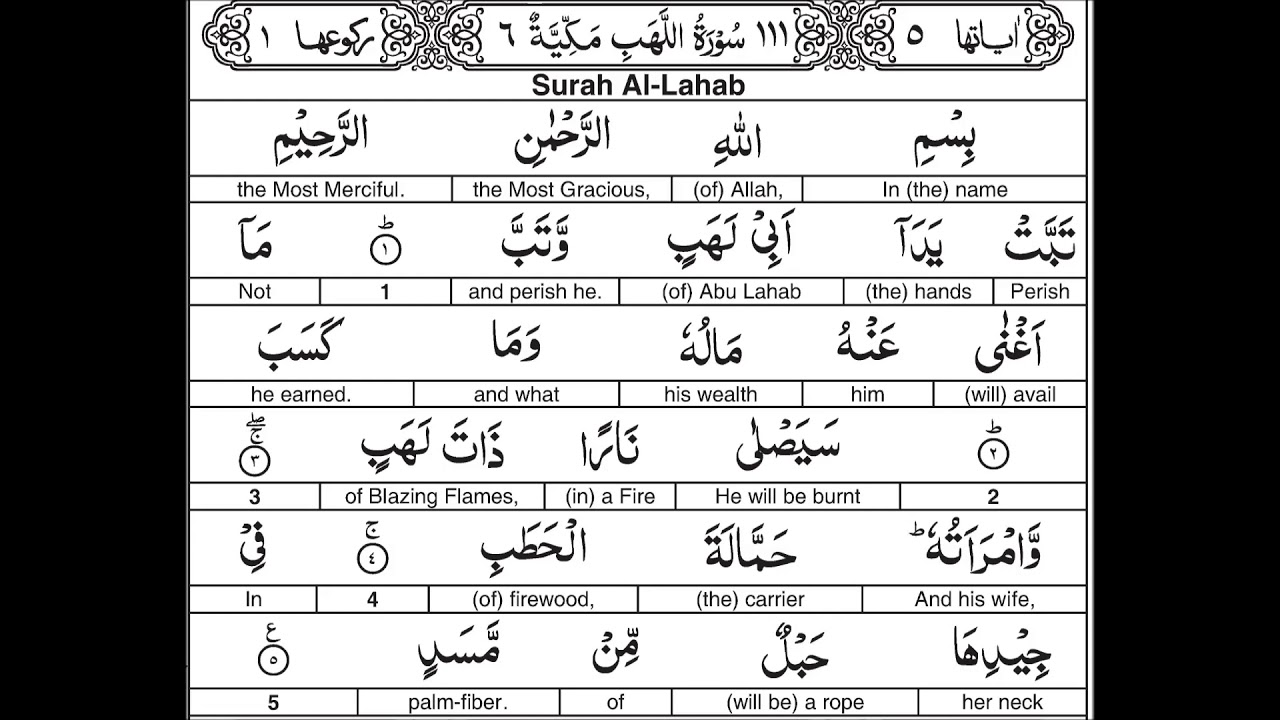 اٰیاتها ٥ ١١١ سُوْرَةُ اللَّهَبِ مَكِّيَّةٌ ٦ ركوعها ١
Surah Al-Lahab
بِسْمِ اللهِ الرَّحْمٰنِ الرَّحِيْمِ
In (the) name (of) Allah, the Most Gracious, the Most Merciful.
تَبَّتْ يَدَآ اَبِيْ لَهَبٍ وَّتَبَّ ؕ ١ مَآ
Perish (the) hands (of) Abu Lahab and perish he. 1 Not
اَغْنٰى عَنْهُ مَالُهٗ وَمَا كَسَبَ
(will) avail him his wealth and what he earned.
ؕ ٢ سَيَصْلٰى نَارًا ذَاتَ لَهَبٍ ۚۖ ٣
2 He will be burnt (in) a Fire of Blazing Flames, 3
وَّامْرَاَتُهٗ ؕ حَمَّالَةَ الْحَطَبِ ۚ ٤ فِيْ
And his wife, (the) carrier (of) firewood, 4 In
جِيْدِهَا حَبْلٌ مِّنْ مَّسَدٍ ع ٥
her neck (will be) a rope of palm-fiber. 5